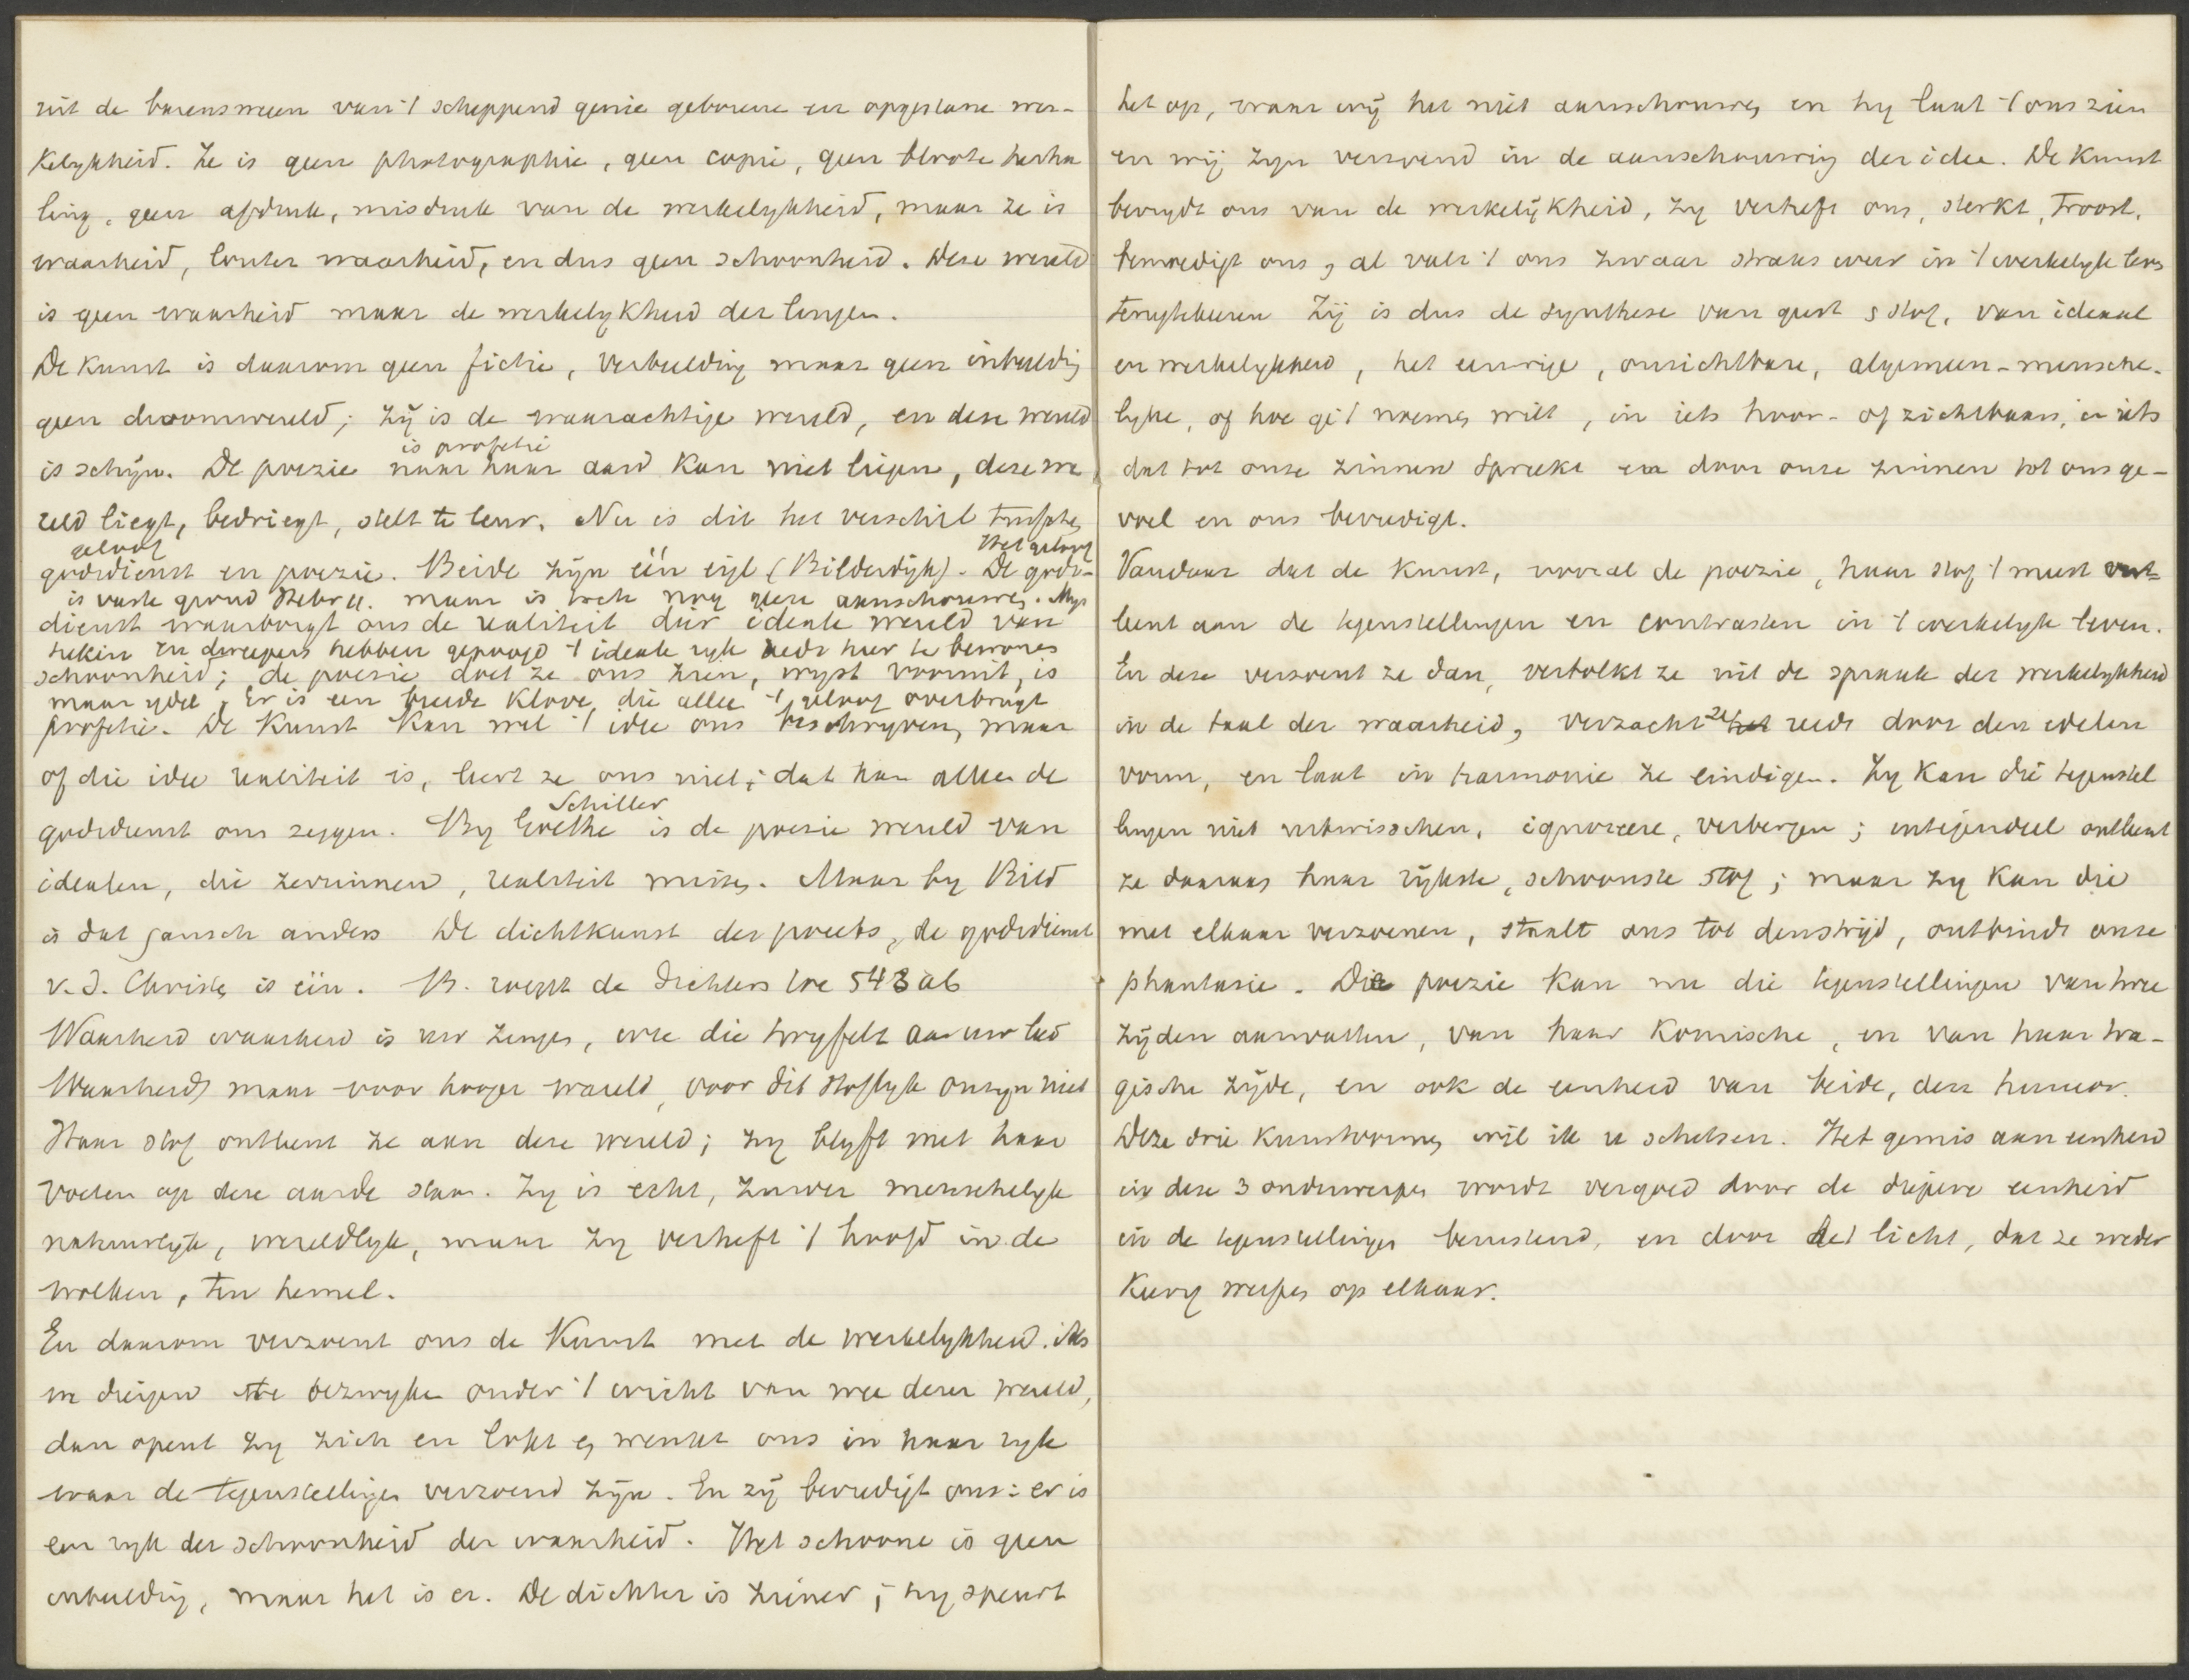 uit de barensweeen van 't scheppend genie geborene en opgestane wer-
kelykheid. Ze is geen photographie, geen copie, geen bloote herha
ling, geen afdruk, misdruk van de werkelykheid, maar ze is
waarheid, louter waarheid, en dus geen schoonheid. Deze wereld
is geen waarheid maar de werkelykheid der leugen.
De kunst is daarom geen fictie, verbeelding maar geen inbeelding
geen droomwereld; zij is de waarachtige wereld, en deze wereld
is profetie
is schijn. De poezie naar haar aard kan niet liegen, deze we
reld liegt, bedriegt, stelt te leur. Nu is dit het verschil tusschen
geloof Het geloof
godsdienst en poezie. Beide zijn één egt (Bilderdijk). De gods-
is vaste grond Hebr 11. maar is toch nog geen aanschouwen. Mys
dienst waarborgt ons de realiteit dier ideale wereld van
tieken en dweepers hebben gepoogd 't ideale ryk reeds hier te bewonen
schoonheid; de poesie doet ze ons zien, wyst vooruit, is
maar ydel. Er is een breede klove, die alleen 't geloof overbrugt
profetie. De kunst kan wel 't idee ons beschryven, maar
of die idee realiteit is, leert ze ons niet; dat kan alleen de
Schiller
godsdienst ons zeggen. By Goethe is de poezie wereld van
idealen, die zerrinnen, realiteit missen. Maar by Bild
is dat gansch anders De dichtkunst des poeets, de godsdienst
v.d. Christen is één. B. roept de dichters toe 543 ab
Waarheid waarheid is uw zingen, wee die twyfelt aan uw lied
Waarheid, maar voor hooger wareld, voor dit stoflyk onzyn niet
Haar stof ontleent ze aan deze wereld; zy blyft met haar
voeten op deze aarde staan. Zy is echt, zuiver menschelyk
natuurlyk, wereldlyk, maar zy verheft 't hoofd in de
wolken, ten hemel.
En daarom verzoent ons de Kunst met de werkelykheid. Als
we dreigen te bezwyken onder 't wicht van wee dezer wereld,
dan opent zy zich en lokt en wenkt ons in haar ryk
waar de tegenstellingen verzoend zijn. En zij bevredigt ons: er is
een ryk der schoonheid der waarheid. Het schoone is geen
inbeelding, maar het is er. De dichter is ziener; hy speurt
het op, waar wij het niet aanschouwen en hy laat 't ons zien
en wij zyn verzoend in de aanschouwing der idee. De kunst
bevrydt ons van de werkelijkheid, zy verheft ons, sterkt, troost,
bemoedigt ons, al valt 't ons zwaar straks weer in 't werkelyk leven
terugtekeeren Zij is dus de synthese van geest & stof, van ideaal
en werkelykheid, het eeuwige, onzichtbare, algemeen-mensche-
lyke, of hoe ge 't noemen wilt, in iets hoor- of zichtbaars, in iets
dat tot onze zinnen spreekt en door onze zinnen tot ons ge-
voel en ons bevredigt.
Vandaar dat de kunst, vooral de poezie, haar stof 't meest ont-
leent aan de tegenstellingen en contrasten in 't werkelyk leven.
En deze verzoent ze dan, vertolkt ze uit de spraak der werkelykheid
in de taal der waarheid, verzacht ze reeds door den edelen
vorm, en laat in harmonie ze eindigen. Zy kan die tegenstel
lingen niet uitwisschen, ignoreere, verbergen; integendeel ontleent
ze daaraan haar rijkste, schoonste stof; maar zy kan die
met elkaar verzoenen, staalt ons tot den strijd, ontbindt onze
phantasie. De poezie kan nu die tegenstellingen van twee
zijden aanvatten, van haar komische, en van haar tra-
gische zijde, en ook de eenheid van beide, den humor.
Deze drie kunstvormen wil ik u schetsen. Het gemis aan eenheid
in deze 3 onderwerpen wordt vergoed door de diepere eenheid
in de tegenstellingen berustend, en door het licht, dat ze weder
keerig werpen op elkaar.